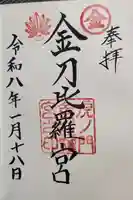 奉拝
金刀比羅宮
虎ノ門
令和八年一月十八日